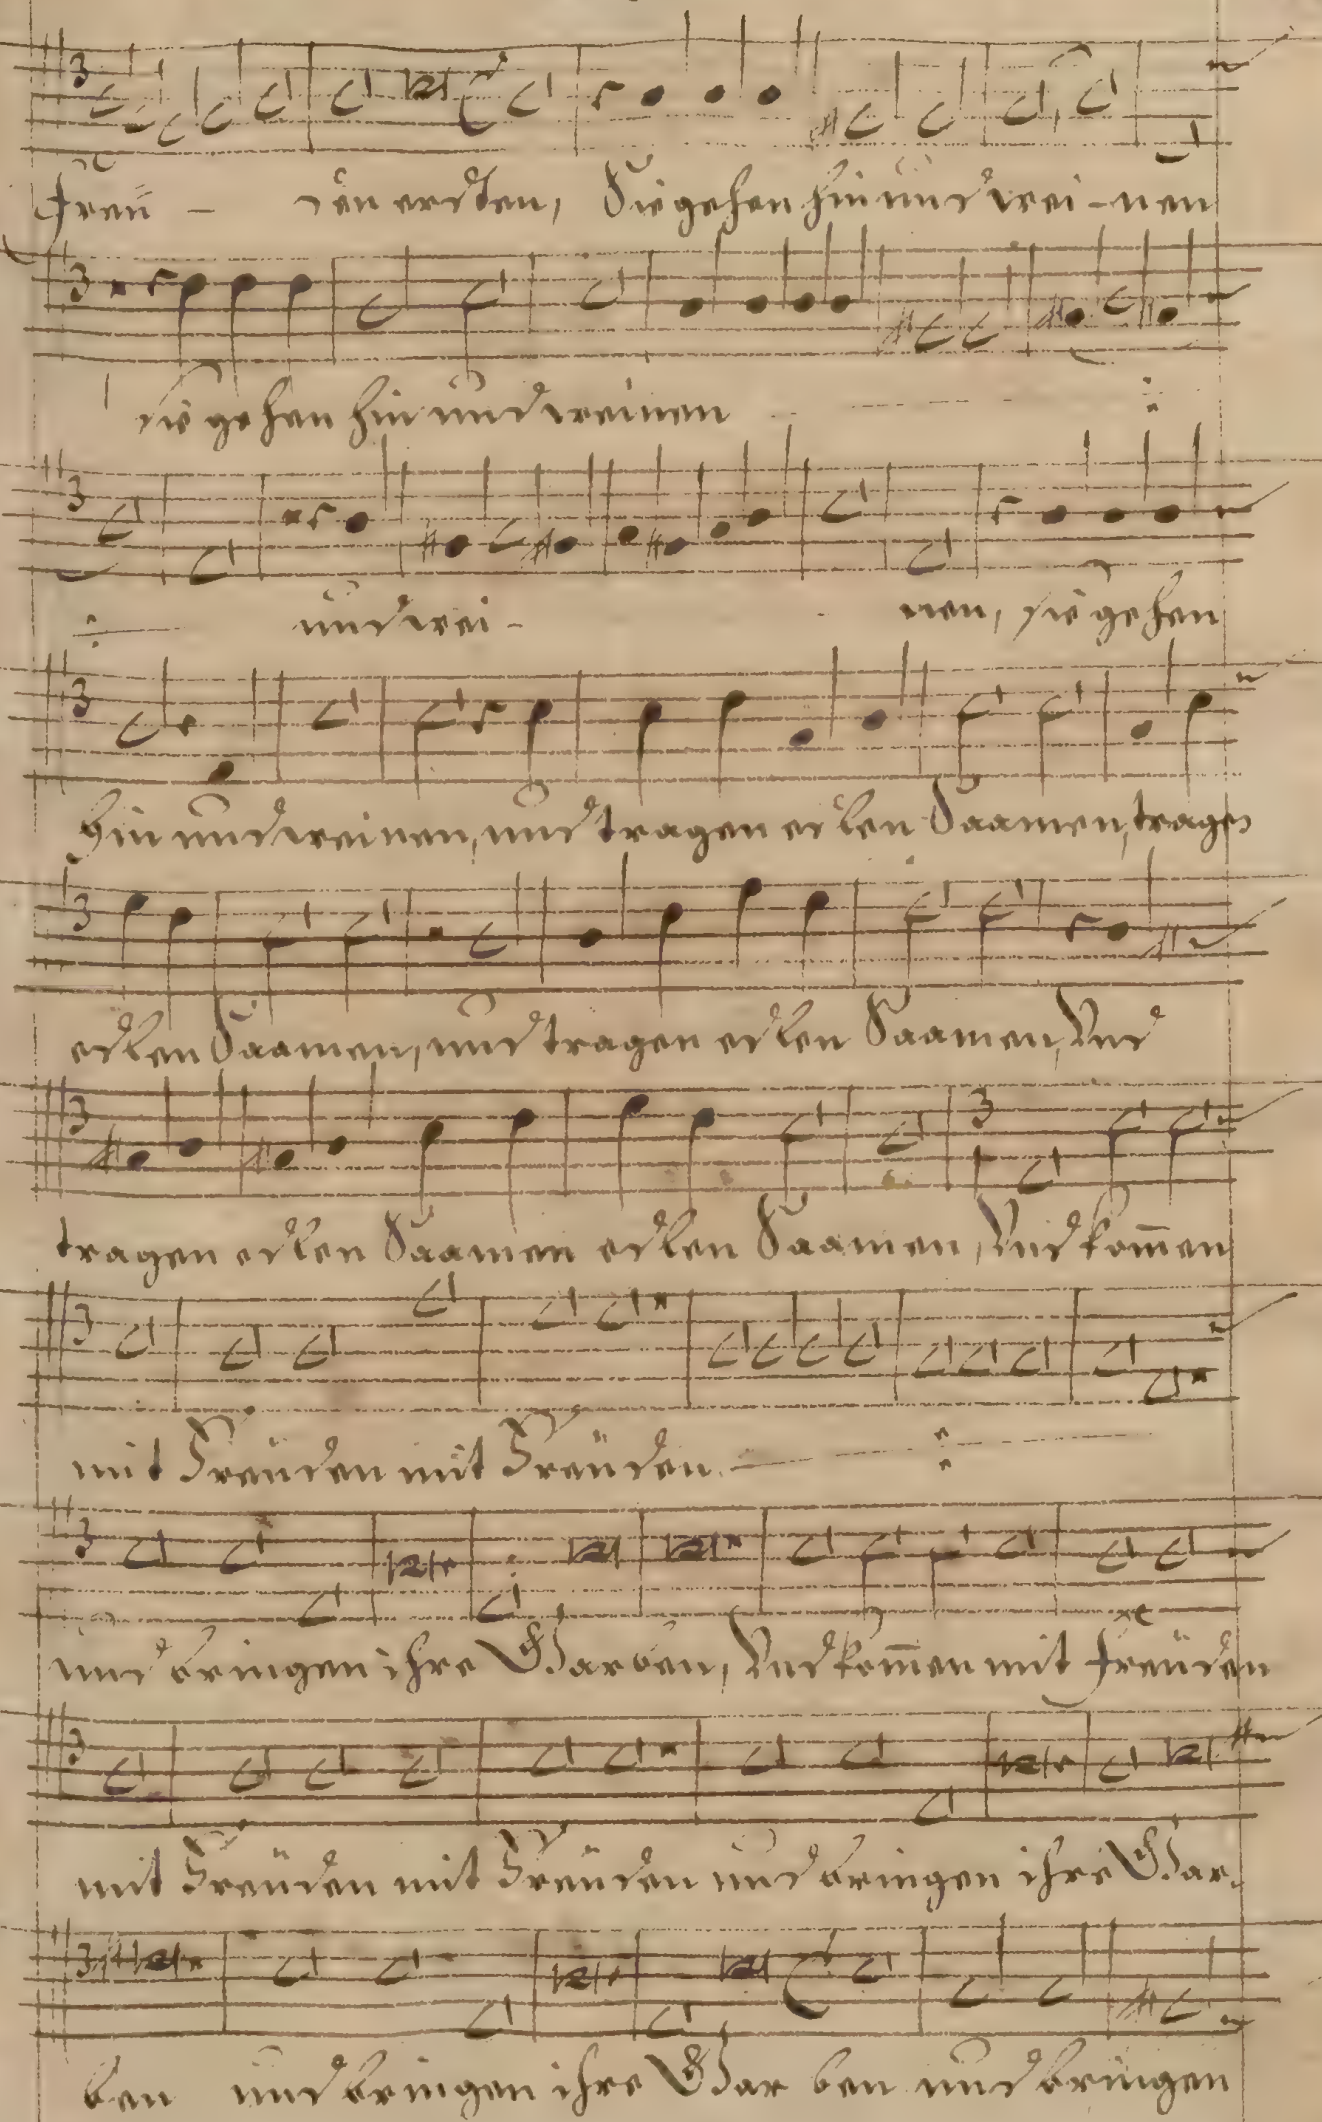 Freü - den erdten, Sie gehen hin und wei-nen
sie gehen hin und weinen
und wei- nen, sie gehen
hin und weinen, und tragen edlen Saamen, tragen
edlen Saamen, und tragen edlen Saamen, Und
tragen edlen Saamen edlen Saamen, Und kom̅en
mit Freüden mit Freüden.
und bringen ihre Garben, Und kom̅en mit Freüden
mit Freüden mit Freüden und bringen ihre Gar-
ben und bringen ihre Gar ben und bringen